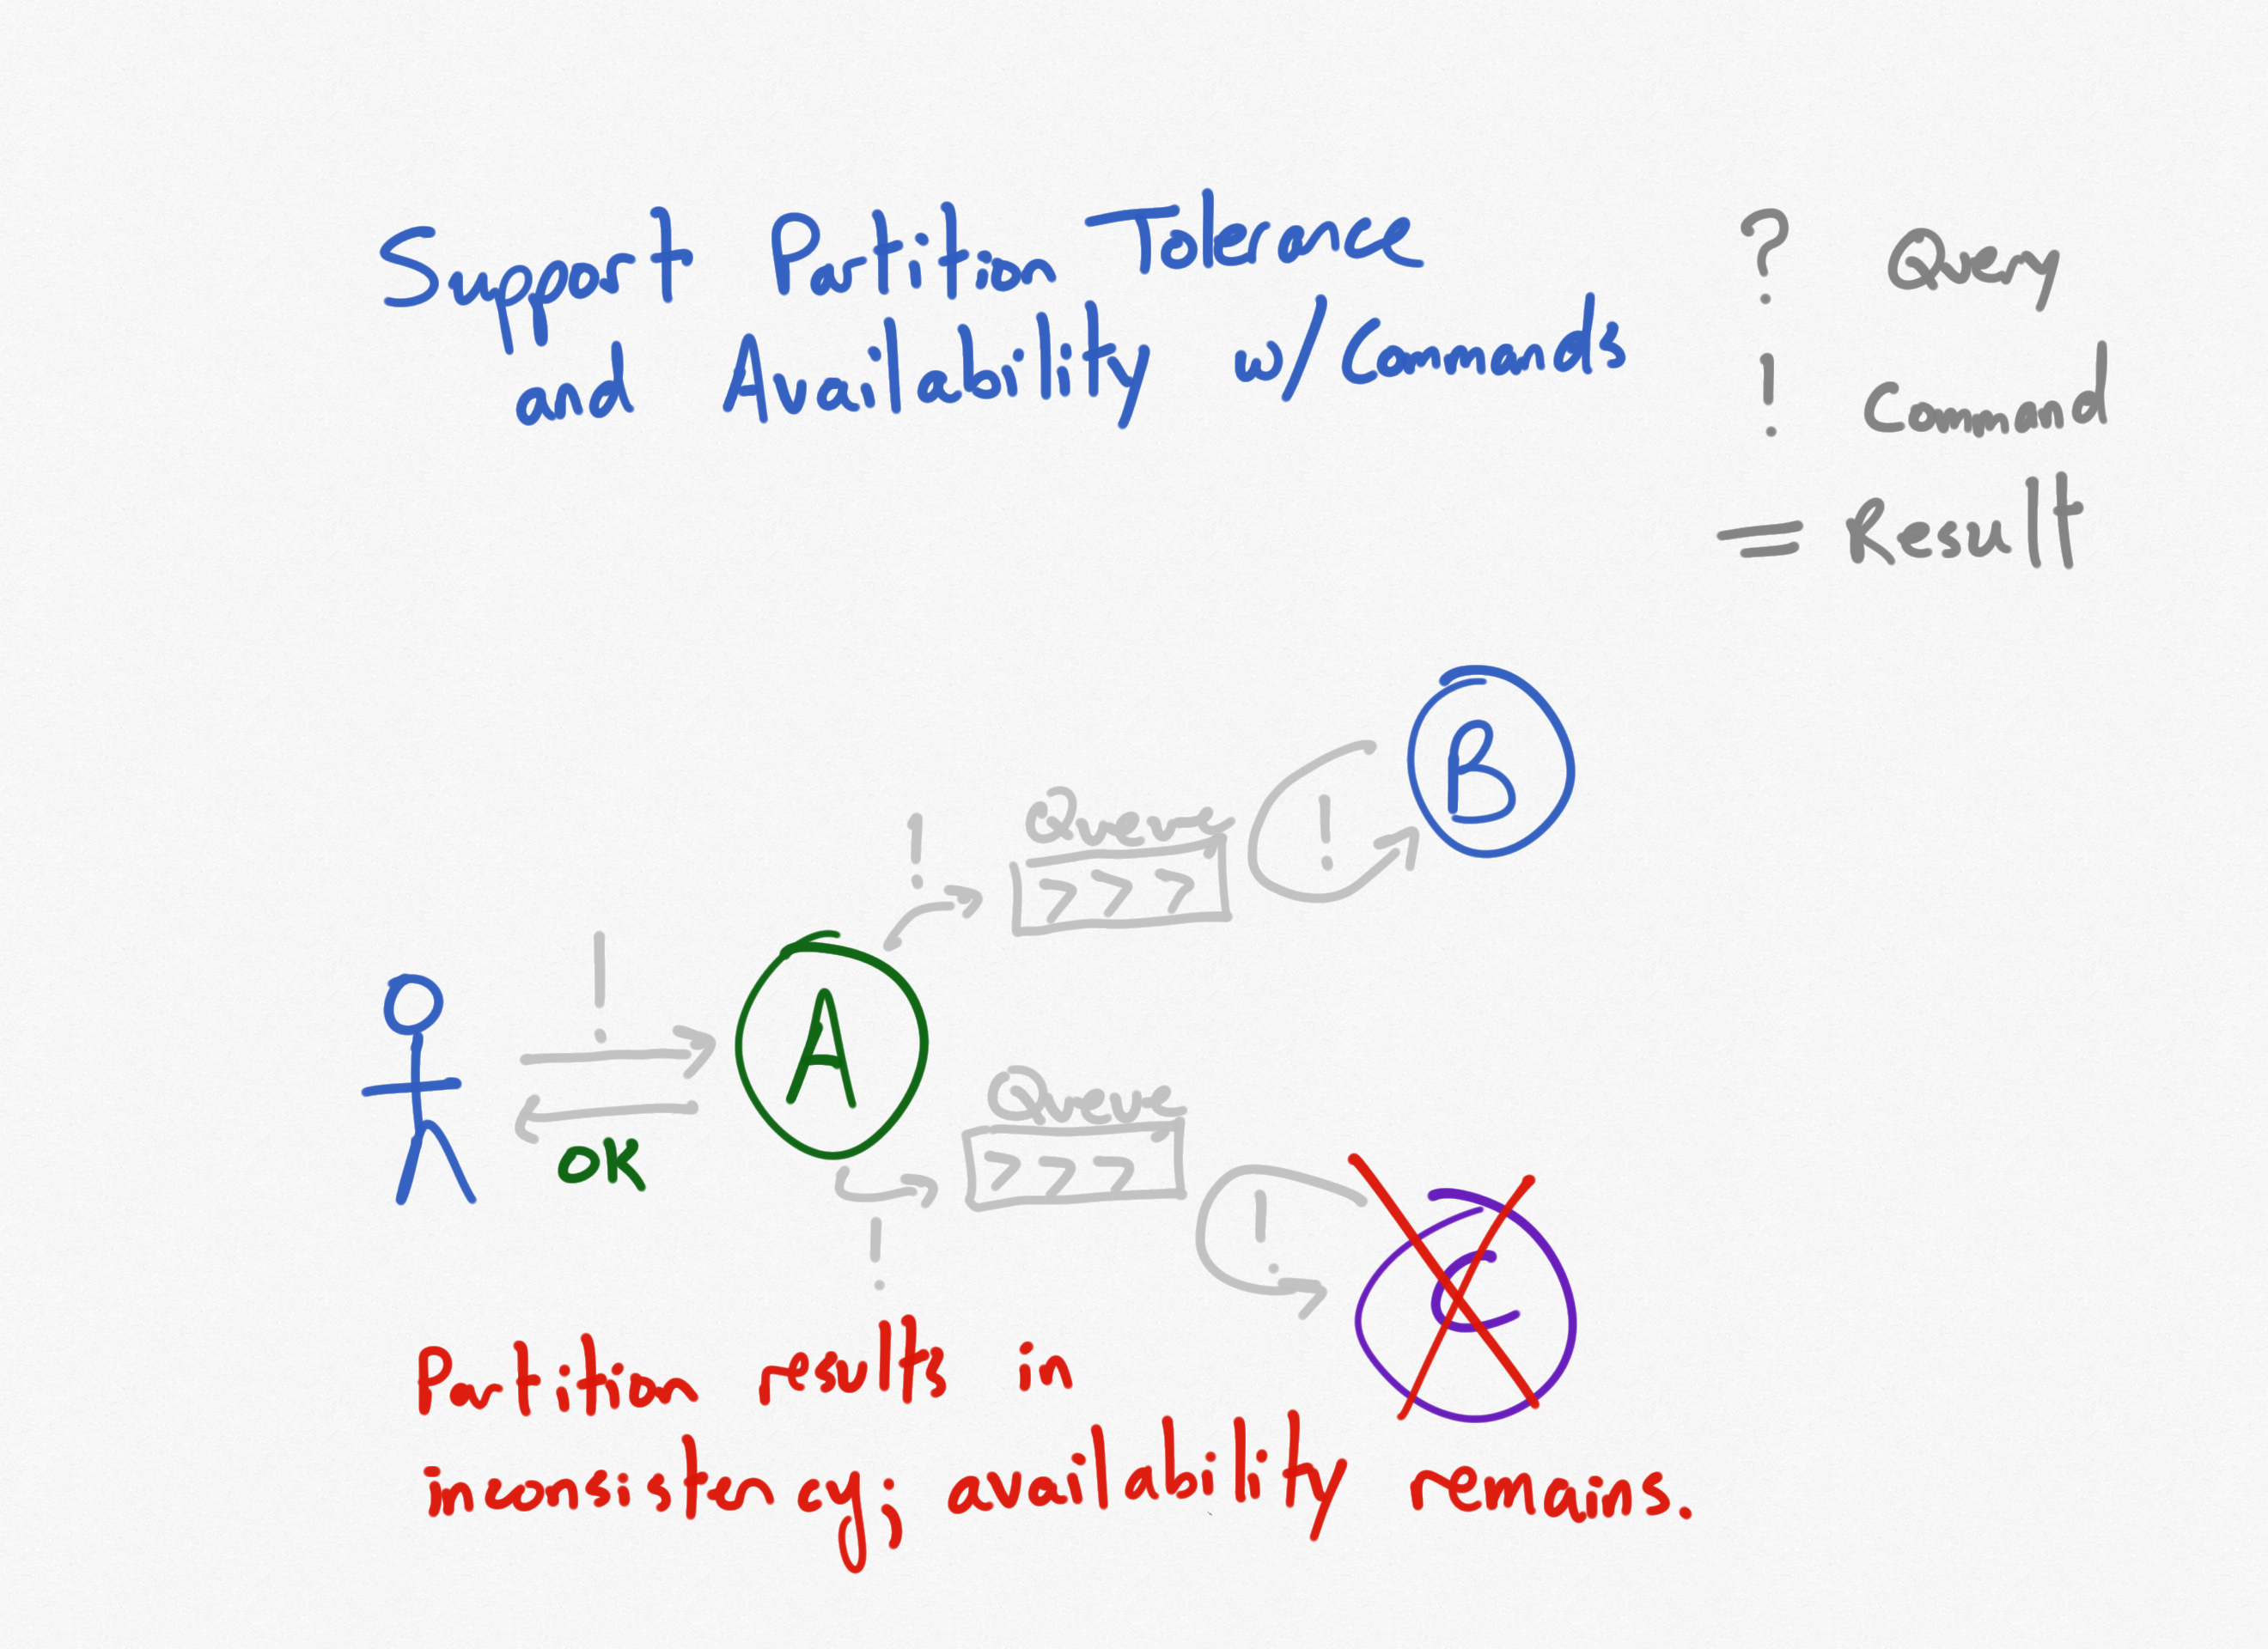 Support Partition Tolerance
and Availability w/Commands
? Query
! Command
= Result
B
Queue
!
!
> > >
!
A
OK
Queue
> > >
!
!
C
Partition results in
inconsistency; availability remains.